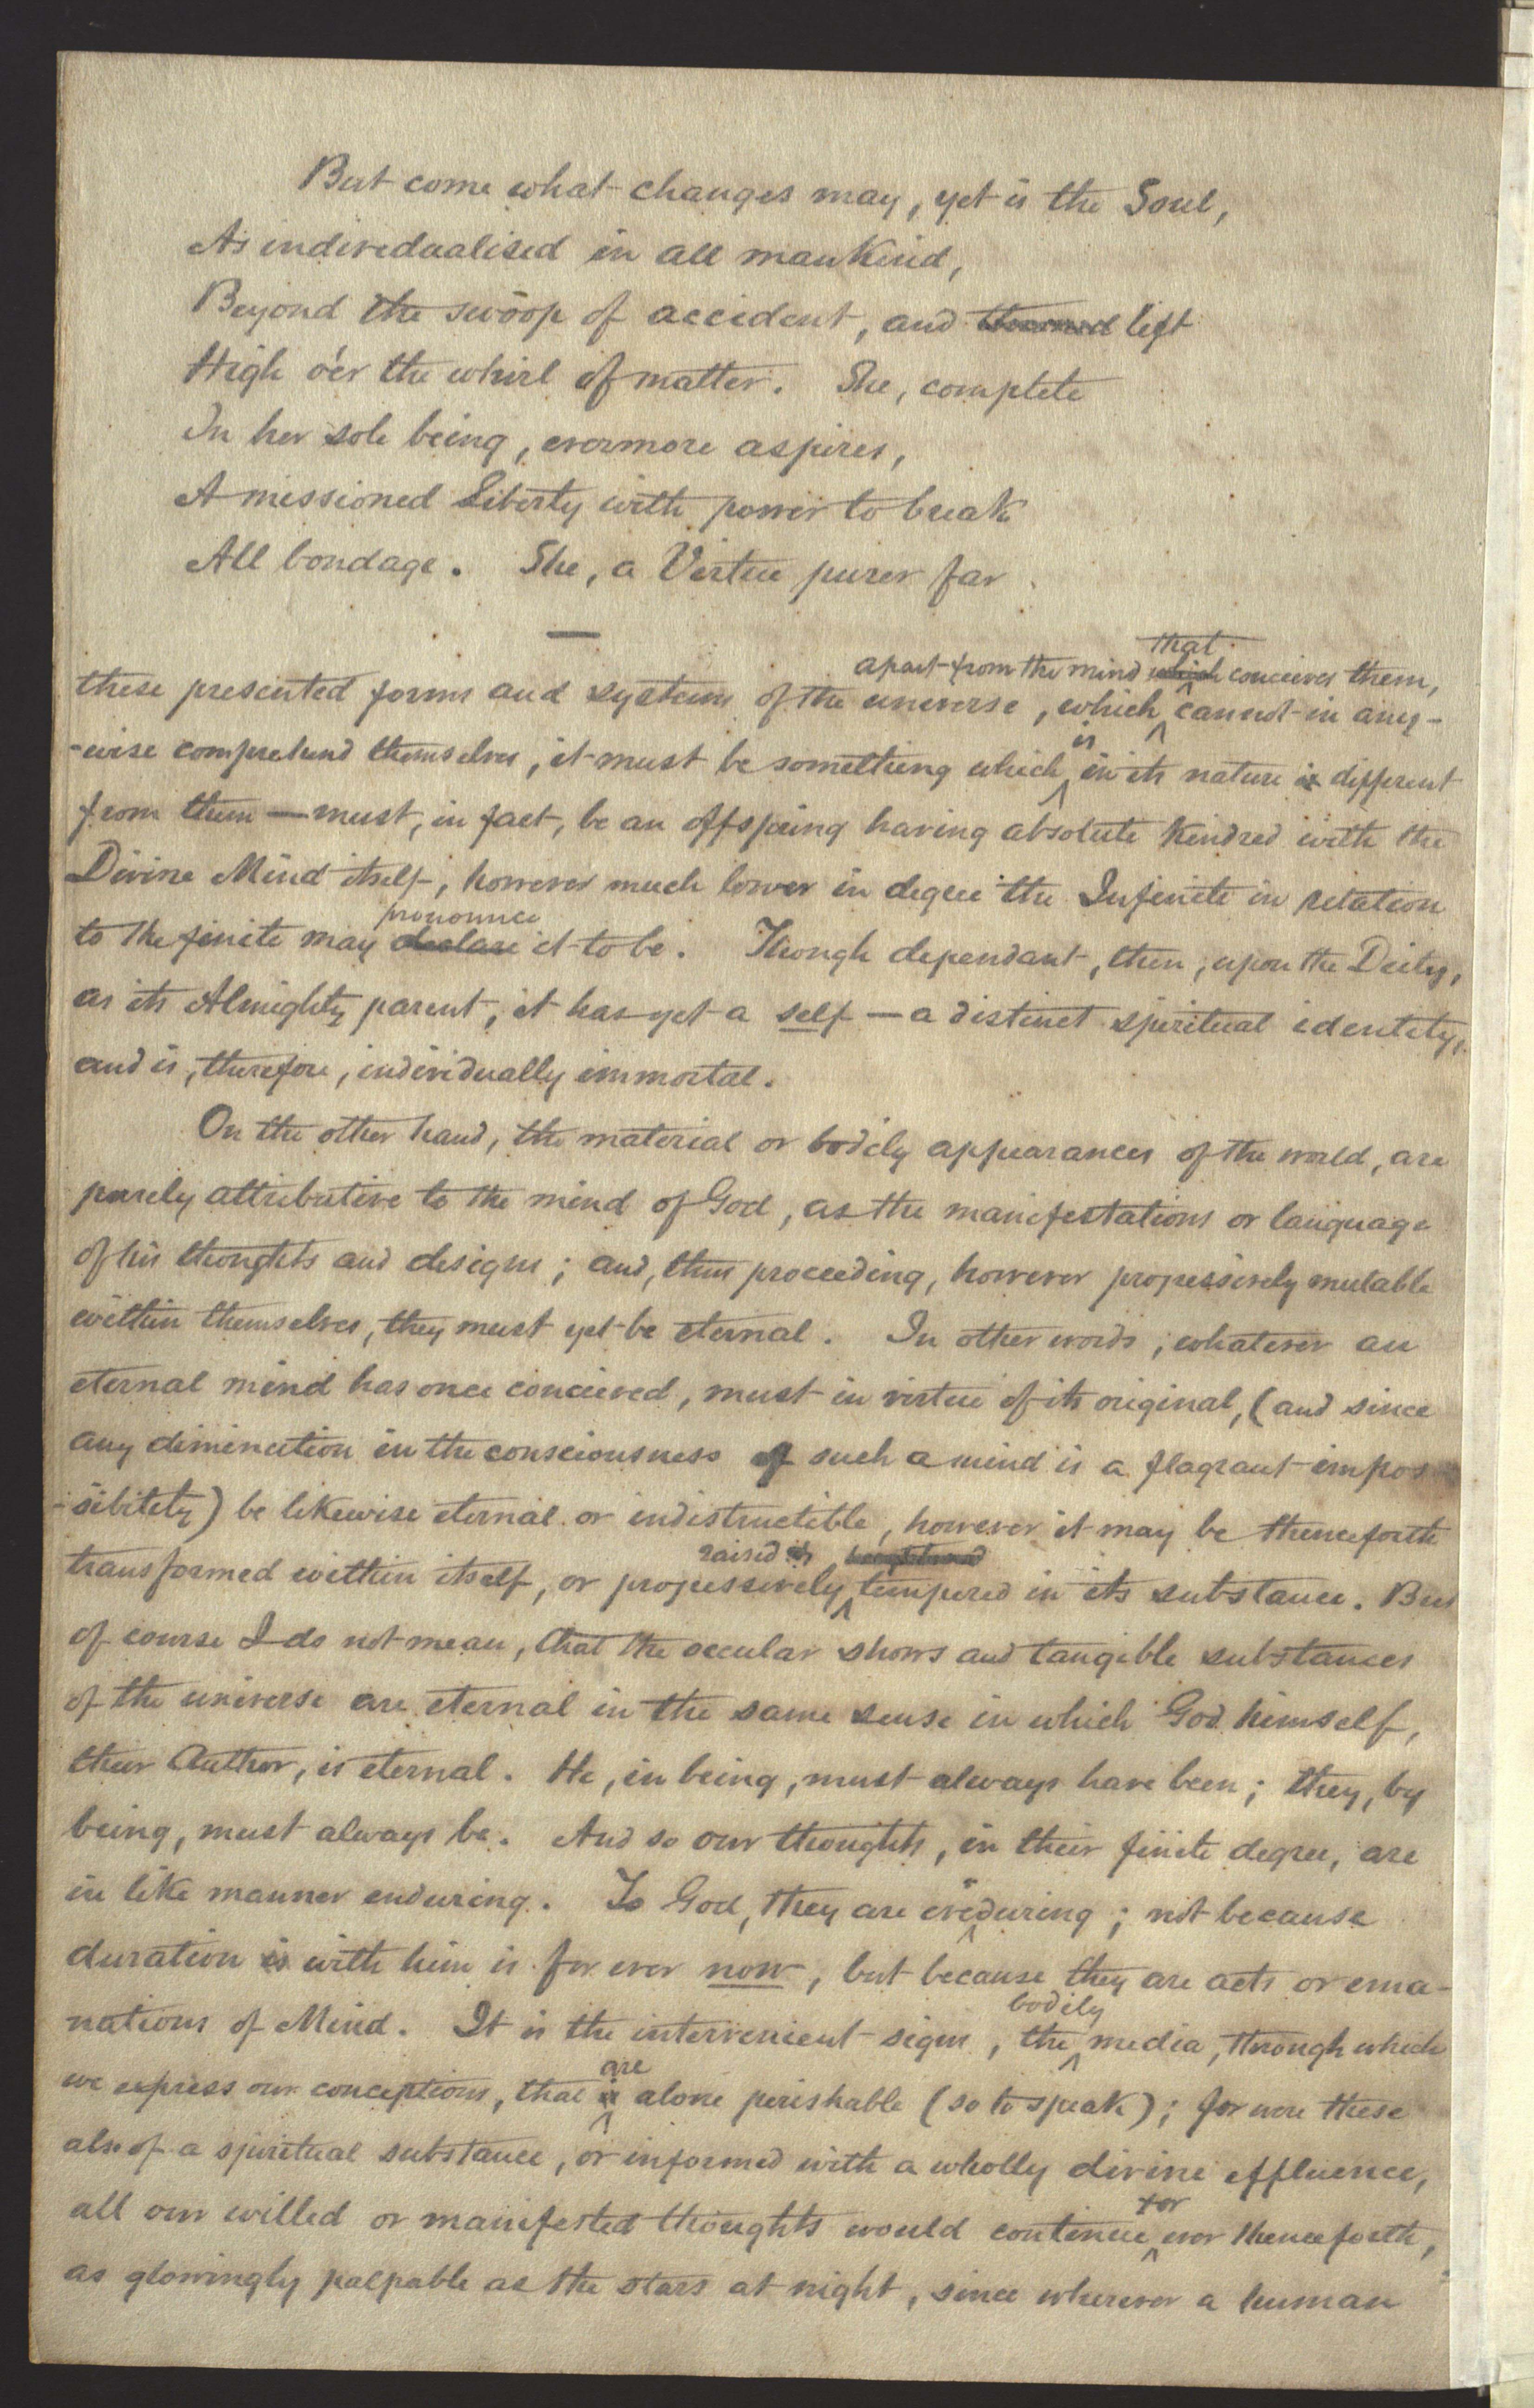 But come what changes may, yet is the Soul,
As individualised in all mankind,
Beyond the swoop of accident, and left
High o'er the whirl of matter. She, complete
In her sole being, evermore aspires,
A missioned Liberty with power to break
All bondage. She, a Virtue purer far
that
apart from the mind which conceives them,
these presented forms and systems of the universe, which cannot in any-
is
-wise comprehend themselves, it must be something which in its nature is different
from them — must, in fact, be an offspring having absolute kindred with the
Divine Mind itself, however much lower in degree the Infinite in relation
pronounce
to the finite may declare it to be. Though dependant, then, upon the Deity,
as its Almighty parent, it has yet a self — a distinct spiritual identity,
and is, therefore, individually immortal.
On the other hand, the material or bodily appearances of the world, are
purely attributive to the mind of God, as the manifestations or language
of his thoughts and designs; and, thus proceeding, however progressively mutable
within themselves, they must yet be eternal. In other words, whatever an
eternal mind has once conceived, must in virtue of its original, (and since
any diminution in the consciousness of such a mind is a flagrant impos
-sibility) be likewise eternal or indistructible, however it may be thenceforth
raised
transformed within itself, or progressively tempered in its substance. But
of course I do not mean, that the occular shows and tangible substances
of the universe are eternal in the same sense in which God himself,
their Author, is eternal. He, in being, must always have been; they, by
being, must always be. And so our thoughts, in their finite degree, are
in like manner enduring. To God, they are enduring; not because
duration is with him is for ever now, but because they are acts or ema-
bodily
nations of Mind. It is the intervenient signs, the media, through which
are
we express our conceptions, that is alone perishable (so to speak); for were these
also of a spiritual substance, or informed with a wholly divine effluence,
for
all our willed or manifested thoughts would continue ever thenceforth,
as glowingly palpable as the stars at night, since wherever a human